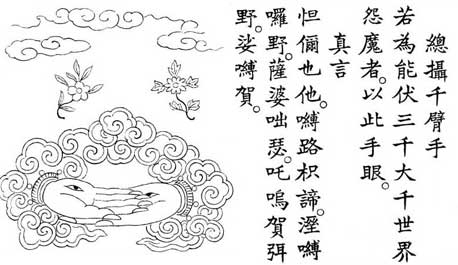 總攝千臂手
若為能伏三千大千世界
怨魔者。以此手眼。
真言
怛儞也他。嚩路枳諦。溼嚩
囉野。薩婆咄瑟。吒嗚賀弭
野。娑嚩賀。